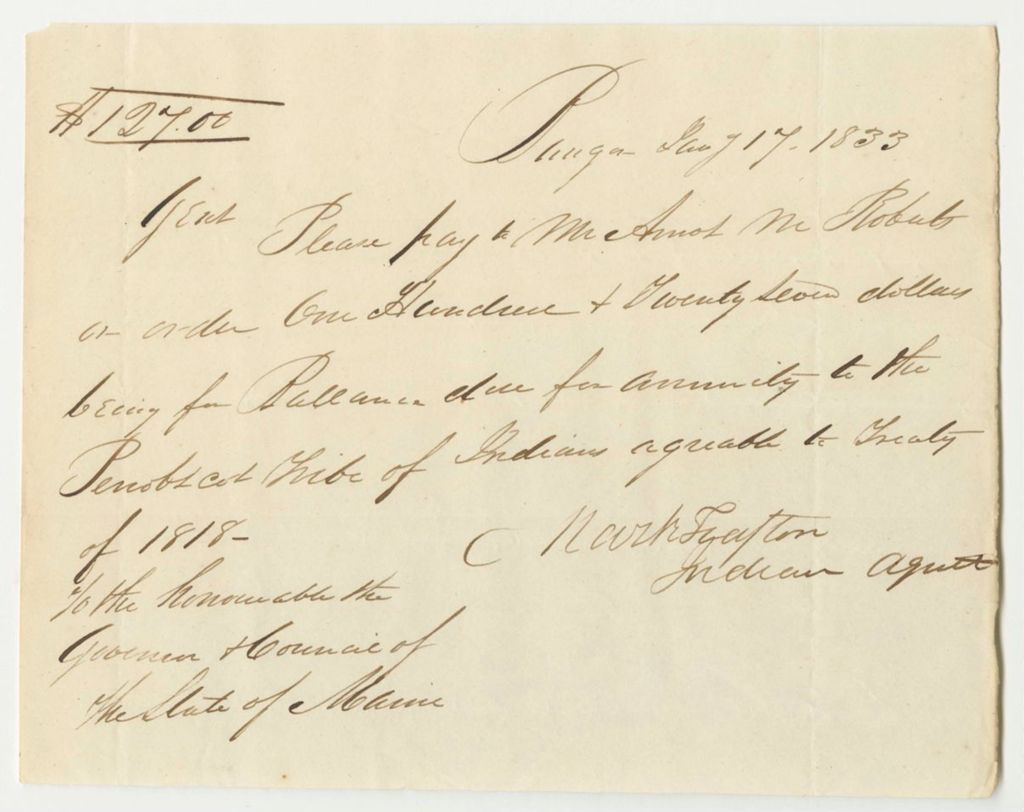 $127.00
Bangor Jany 17. 1833
Gent Please pay to Mr Amos M Roberts
or order One Hundred & Twenty Seven dollars
being for Ballance due for annuity to the
Penobscot Tribe of Indians agreable to Treaty
of 1818-
Mark Trafton
Indian Agent
To the honourable the
Governor & Council of
the State of Maine